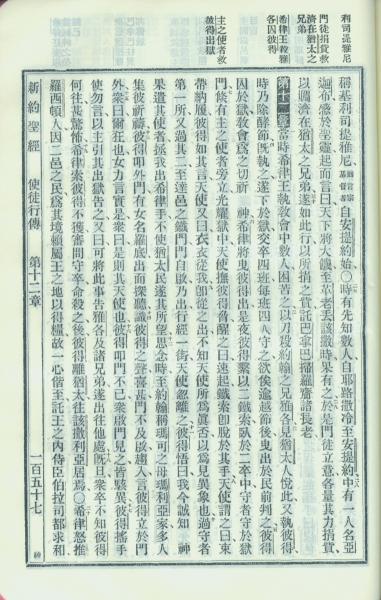 利司提雅尼
門徒捐資救
濟在猶太之
兄弟
希律王殺雅
各囚彼得
主之使者救
彼得出獄
稱基利司提雅尼自安提約始○時有先知數人自耶路撒冷至安提約中有一人名亞
迦布感於聖靈起而言曰天下將大饑在革老丟該撒時果有之於是門徒立意各量其力捐資
以賙濟在猶太之兄弟遂如此行以所捐之資託巴拿巴掃羅齎諸長老
第十二章當時希律王執敎會中數人困苦之以刀殺約翰之兄雅各見猶太人悅此又執彼得
時乃除酵節旣執之遂下於獄交卒四班每班四人守之欲俟逾越節後曳出於民前判之彼得
囚於獄敎會爲之切祈 神希律將曳彼得出是夜彼得繫以二鐵索臥於二卒中守者守於獄
門倏有主之使者旁立光耀獄中天使撫彼得脅醒之曰速起鐵索卽脫於其手天使謂之曰束
帶納履彼得如其言天使又曰衣衣從我卽從之出不知天使所爲眞否以爲見異象也過守者
第一所又過其二至達邑之鐵門門自啟乃出行經一街天使忽離之彼得悟曰我今誠知 神
果遣其使者拯我出希律手不使猶太民遂其所望思念時至約翰稱瑪可之母瑪利亞家多人
集彼祈禱彼得叩外門有女名羅底出而聽識彼得之聲喜甚不及啟門趨入言彼得立於門
外衆曰爾狂也女力言實是衆曰是則其天使也彼得叩門不已衆啟門見之皆駭異彼得搖手
使勿言以主引其出獄告之又曰可將此事告雅各及諸兄弟遂出往他處旣旦衆卒不知彼得
何往甚驚怖希律索彼得不獲審問守卒命殺之後彼得離猶太往該撒利亞居焉○希律怒推
羅西頓人因二邑之民爲其境賴屬王之地以得糧故一心偕至託王之內侍臣伯拉司都求和
新約聖經 使徒行傳 第十二章 一百五十七